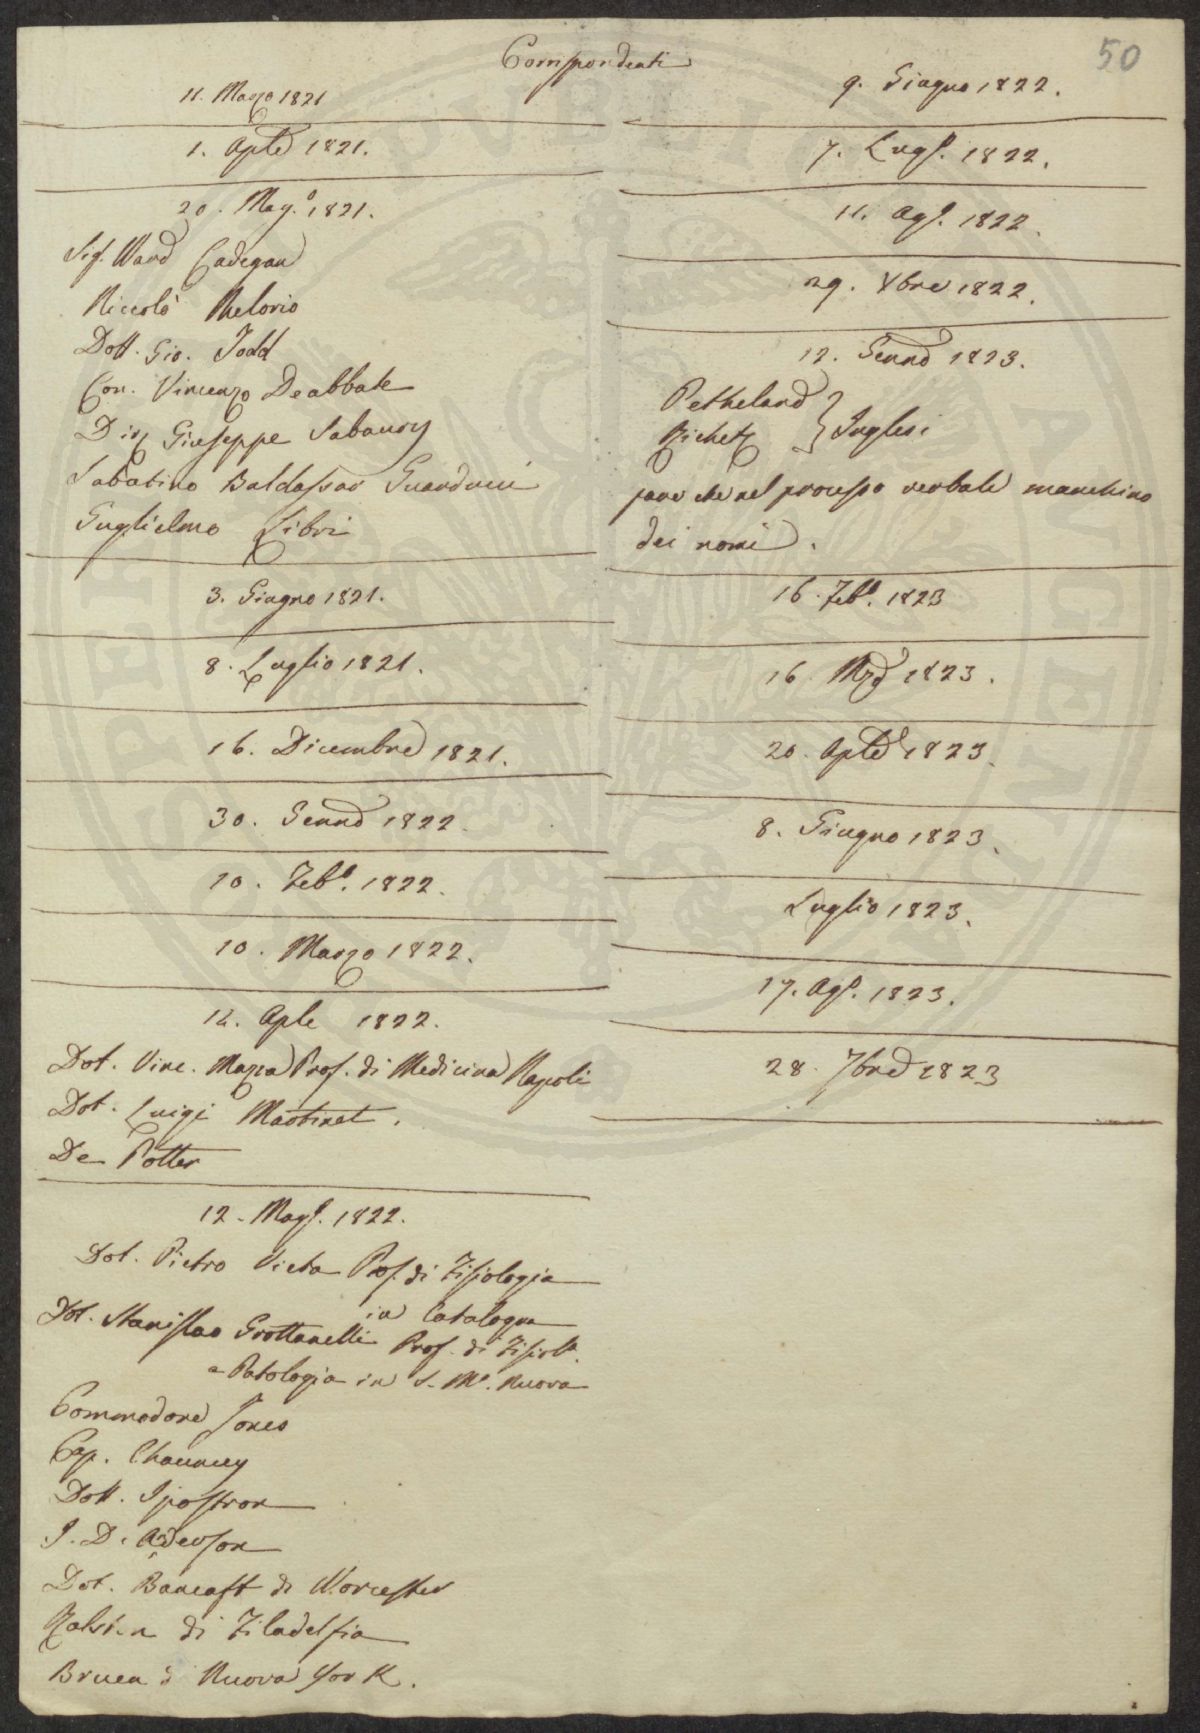 50
Corrispondenti
11. Marzo 1821
1. Aple 1821.
20. Mag.o 1821.
Sig. Ward Cadegan
Niccolò Melorio
Dott. Gio. Todd
Con. Vincenzo Deabbate
Giuseppe Sabaury
Sabatino Baldassar Guarducci
Guglielmo Libri
3. Giugno 1821.
8. Luglio 1821.
16. Dicembre 1821.
30. Genno 1822.
10. Febo. 1822.
10. Marzo 1822.
14. Aple 1822.
Dot. Vinc. Mazza Prof. di Medicina Napoli
Dot. Luigi Martinet.
De Potter
12. Mago. 1822.
Dot. Pietro Vieta Prof. di Fisiologia
in Catalogna
Dot. Stanislao Grottanelli Prof. di Fisiola.
e Patologia in S. Ma. Nuova
Commodore Jones
Cap. Chauncey
Dott.
J. D.
Dot. Bancroft di Worcester
Ralston di Filadelfia
Bruen di Nuova York.
9. Giugno 1822.
7. Lugo. 1822.
11. Ago. 1822.
29. Xbre 1822.
12. Genno 1823.
Petheland
Richetz } Inglesi
pare che nel processo verbale manchino
dei nomi.
16. Febo. 1823
16 Mzo 1823.
20. Aple 1823.
8. Giugno 1823.
Luglio 1823.
17. Ago. 1823.
28. 7bre 1823